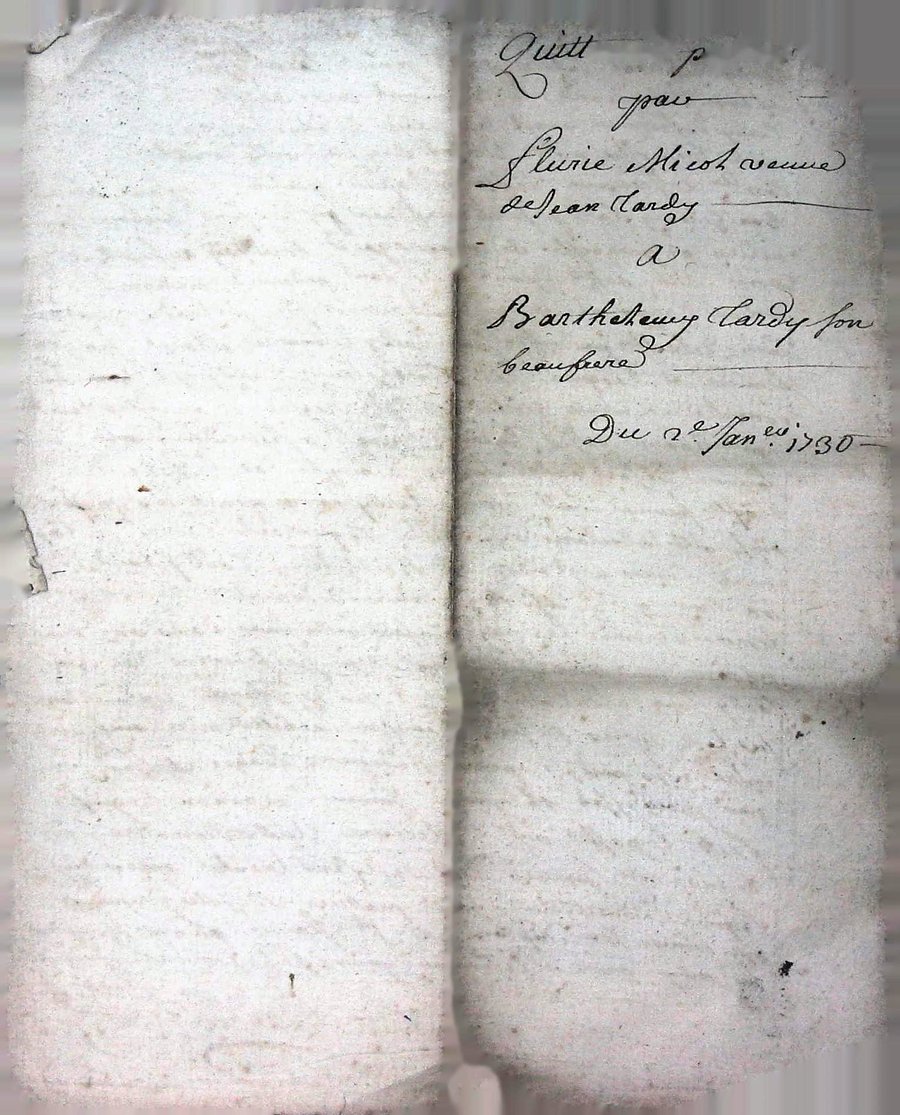 Quitt p
par
flurie Micol veuue
de Jean Tardy
A
Barthelemy Tardy son
beaufrere
Du 2e Janer 1730